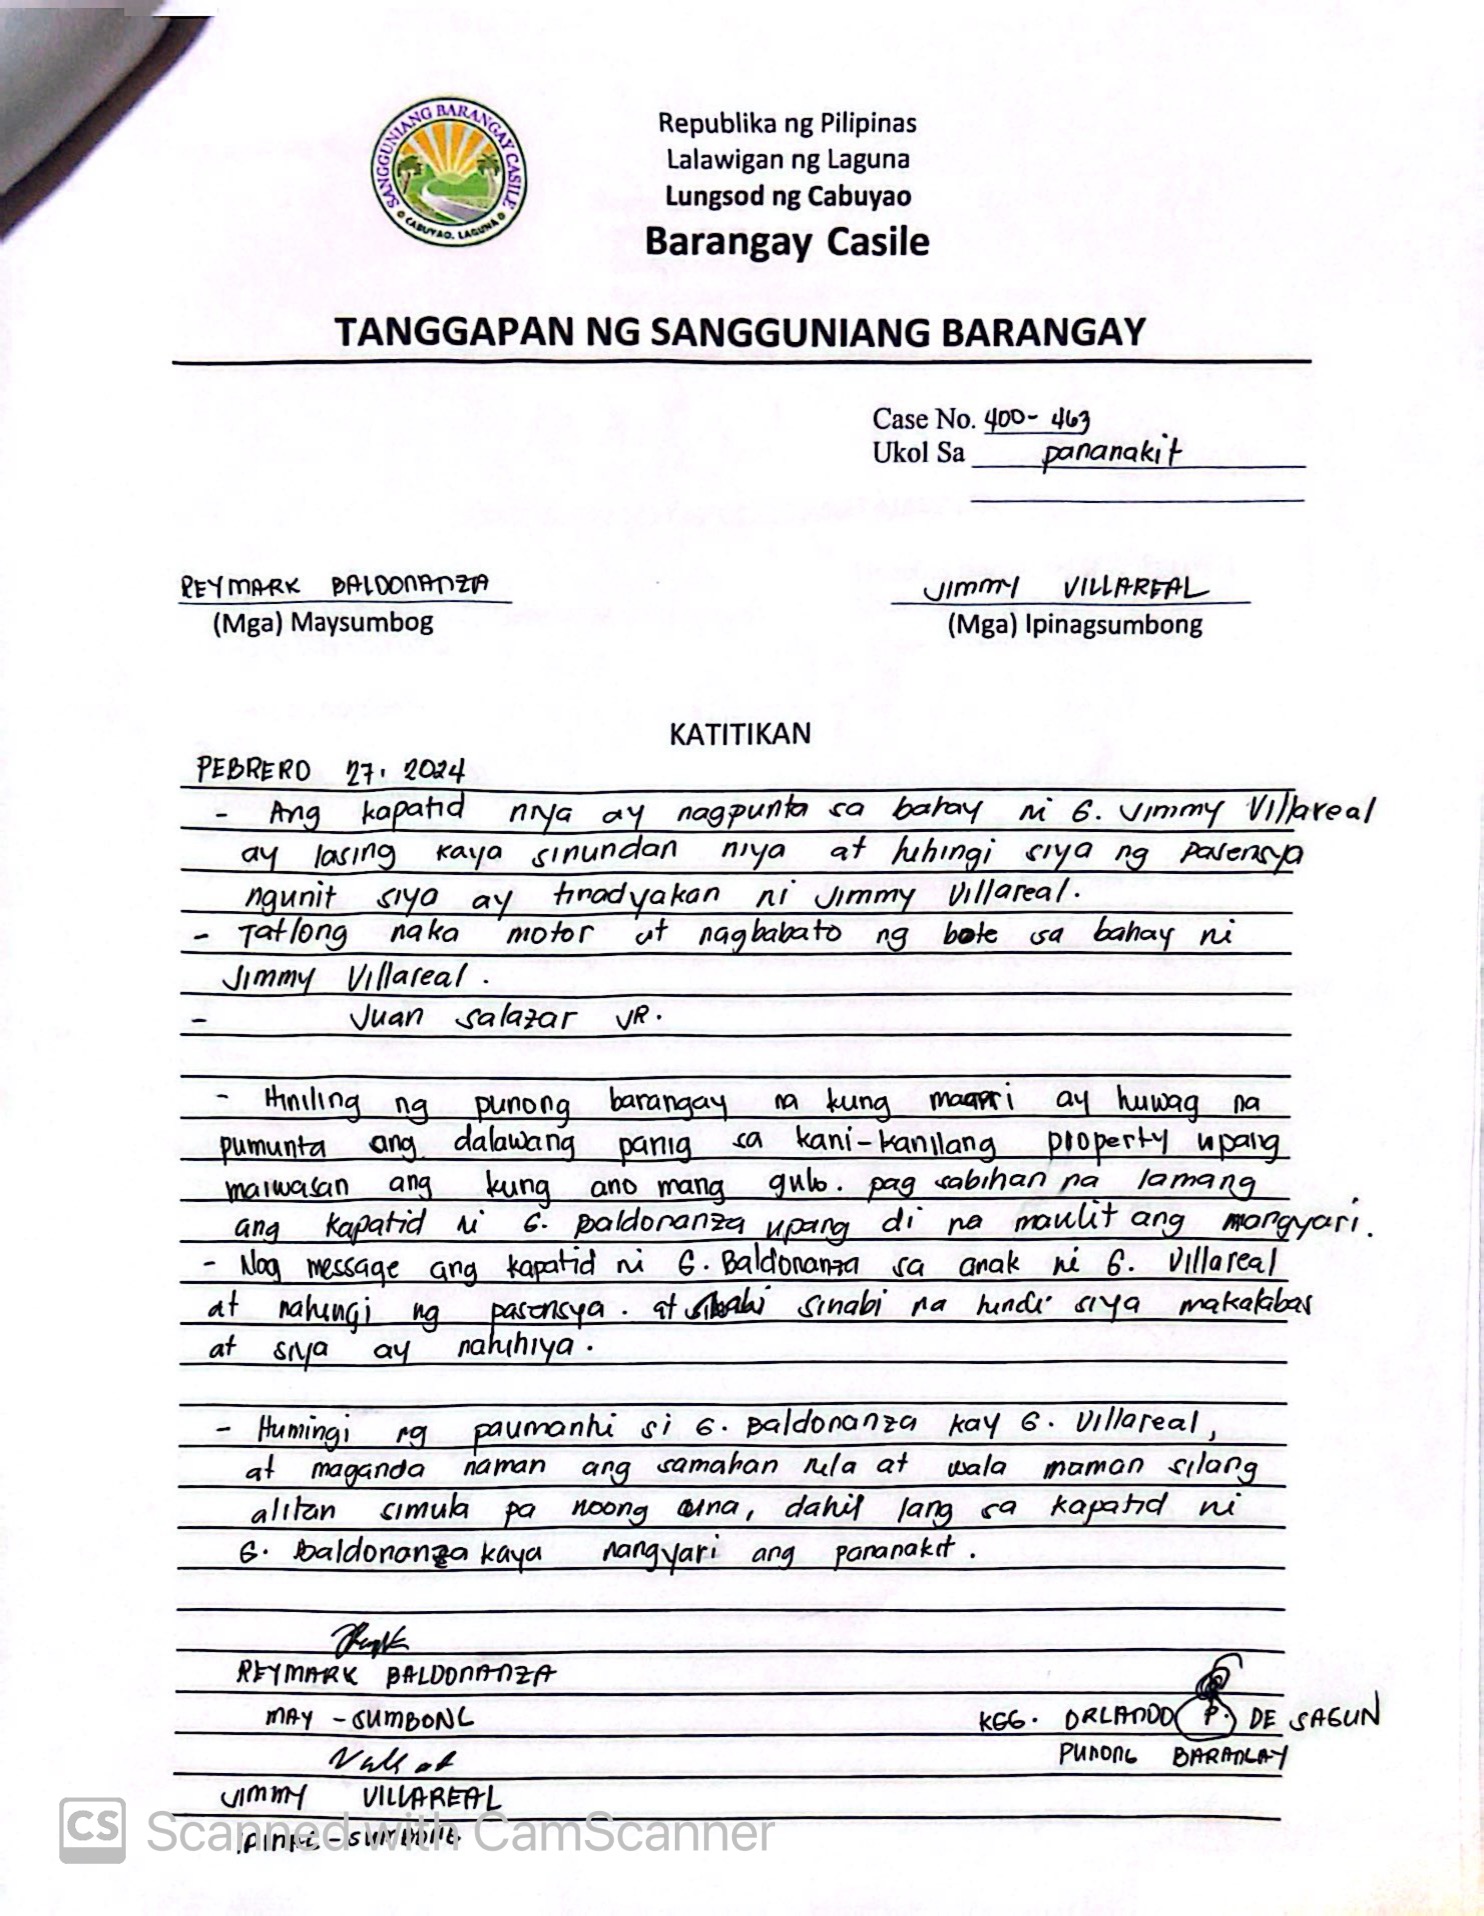 SANGGUNIANG BARANGAY CASILE
CABUYAO, LAGUNA
Republika ng Pilipinas
Lalawigan ng Laguna
Lungsod ng Cabuyao
Barangay Casile
TANGGAPAN NG SANGGUNIANG BARANGAY
Case No. 400-463
Ukol Sa pananakit
REYMARK BALDONANZA JIMMY VILLAREAL
(Mga) Maysumbog (Mga) Ipinagsumbong
KATITIKAN
PEBRERO 27, 2024
- Ang kapatid niya ay nagpunta sa bahay ni G. Jimmy Villareal
ay lasing kaya sinundan niya at huhingi siya ng pasensya
ngunit siya ay tinadyakan ni Jimmy Villareal.
- Tatlong naka motor at nagbabato ng bote sa bahay ni
Jimmy Villareal.
- Juan Salazar JR.
- Hiniling ng punong barangay na kung maaari ay huwag na
pumunta ang dalawang panig sa kani-kanilang property upang
maiwasan ang kung ano mang gulo. pag sabihan na lamang
ang kapatid ni G. Baldonanza upang di na maulit ang mangyari.
- Nag message ang kapatid ni G. Baldonanza sa anak ni G. Villareal
at nahingi ng pasensya. at sinabi na hindi siya makalabas
at siya ay nahihiya.
- Humingi ng paumanhi si G. Baldonanza kay G. Villareal,
at maganda naman ang samahan nila at wala maman silang
alitan simula pa noong una, dahil lang sa kapatid ni
G. Baldonanza kaya nangyari ang pananakit.
REYMARK BALDONANZA
MAY-SUMBONG KGG. ORLANDO P. DE SAGUN
PUNONG BARANGAY
JIMMY VILLAREAL
CS Scanned with CamScanner